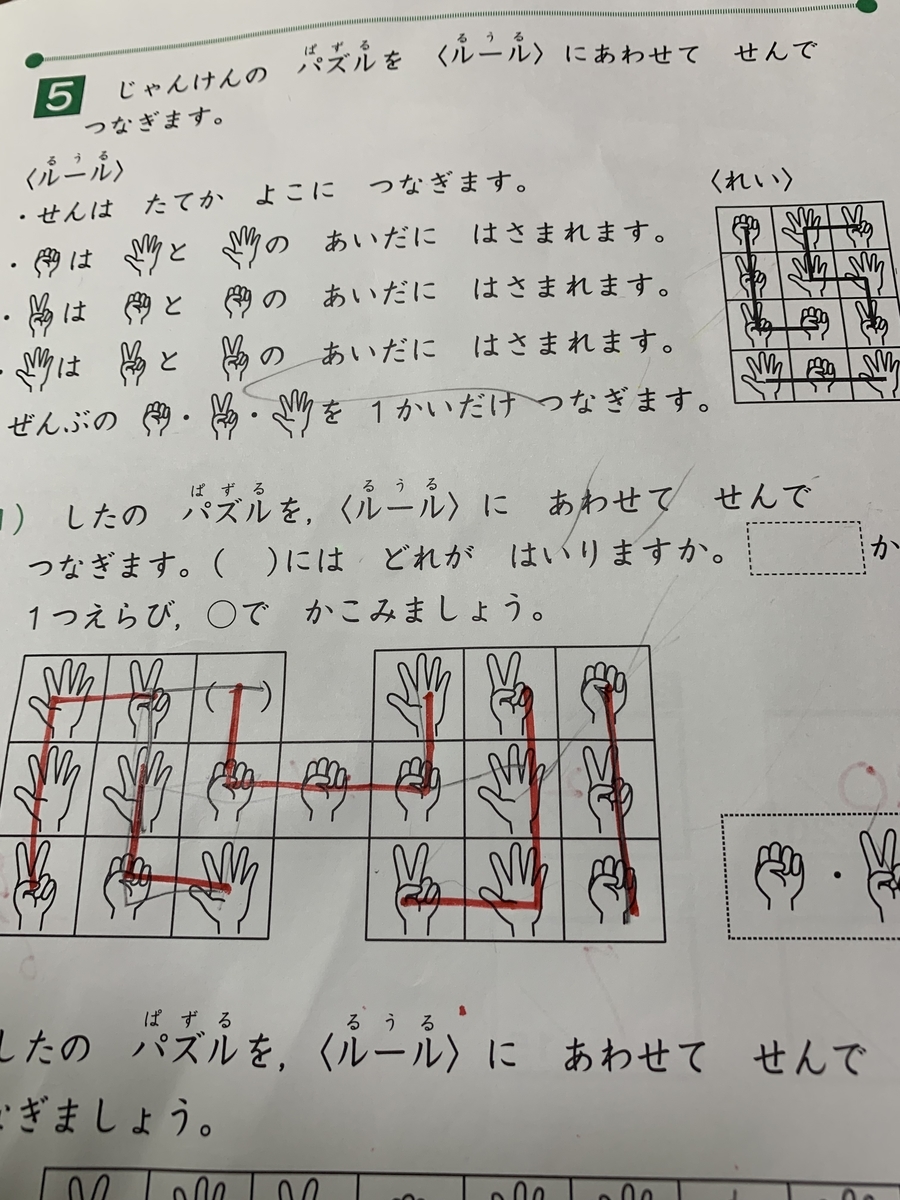 5 じゃんけんの パズルを 〈ルール〉にあわせて せんで
ぱずる るうる
つなぎます。
〈ルール〉
るうる
〈れい〉
・せんは たてか よこに つなぎます。
・は と の あいだに はさまれます。
・は と の あいだに はさまれます。
・は と の あいだに はさまれます。
ぜんぶの ・ ・ を 1かいだけ つなぎます。
) したの パズルを,〈ルール〉に あわせて せんで
ぱずる るうる
つなぎます。( )には どれが はいりますか。 か
1つえらび, ○で かこみましょう。
( )
・
したの パズルを,〈ルール〉に あわせて せんで
ぱずる るうる
ぎましょう。